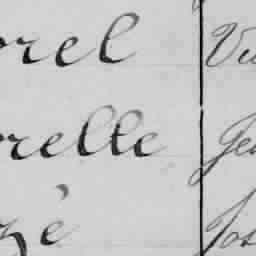 orel Vi
relle Je
zé Jos